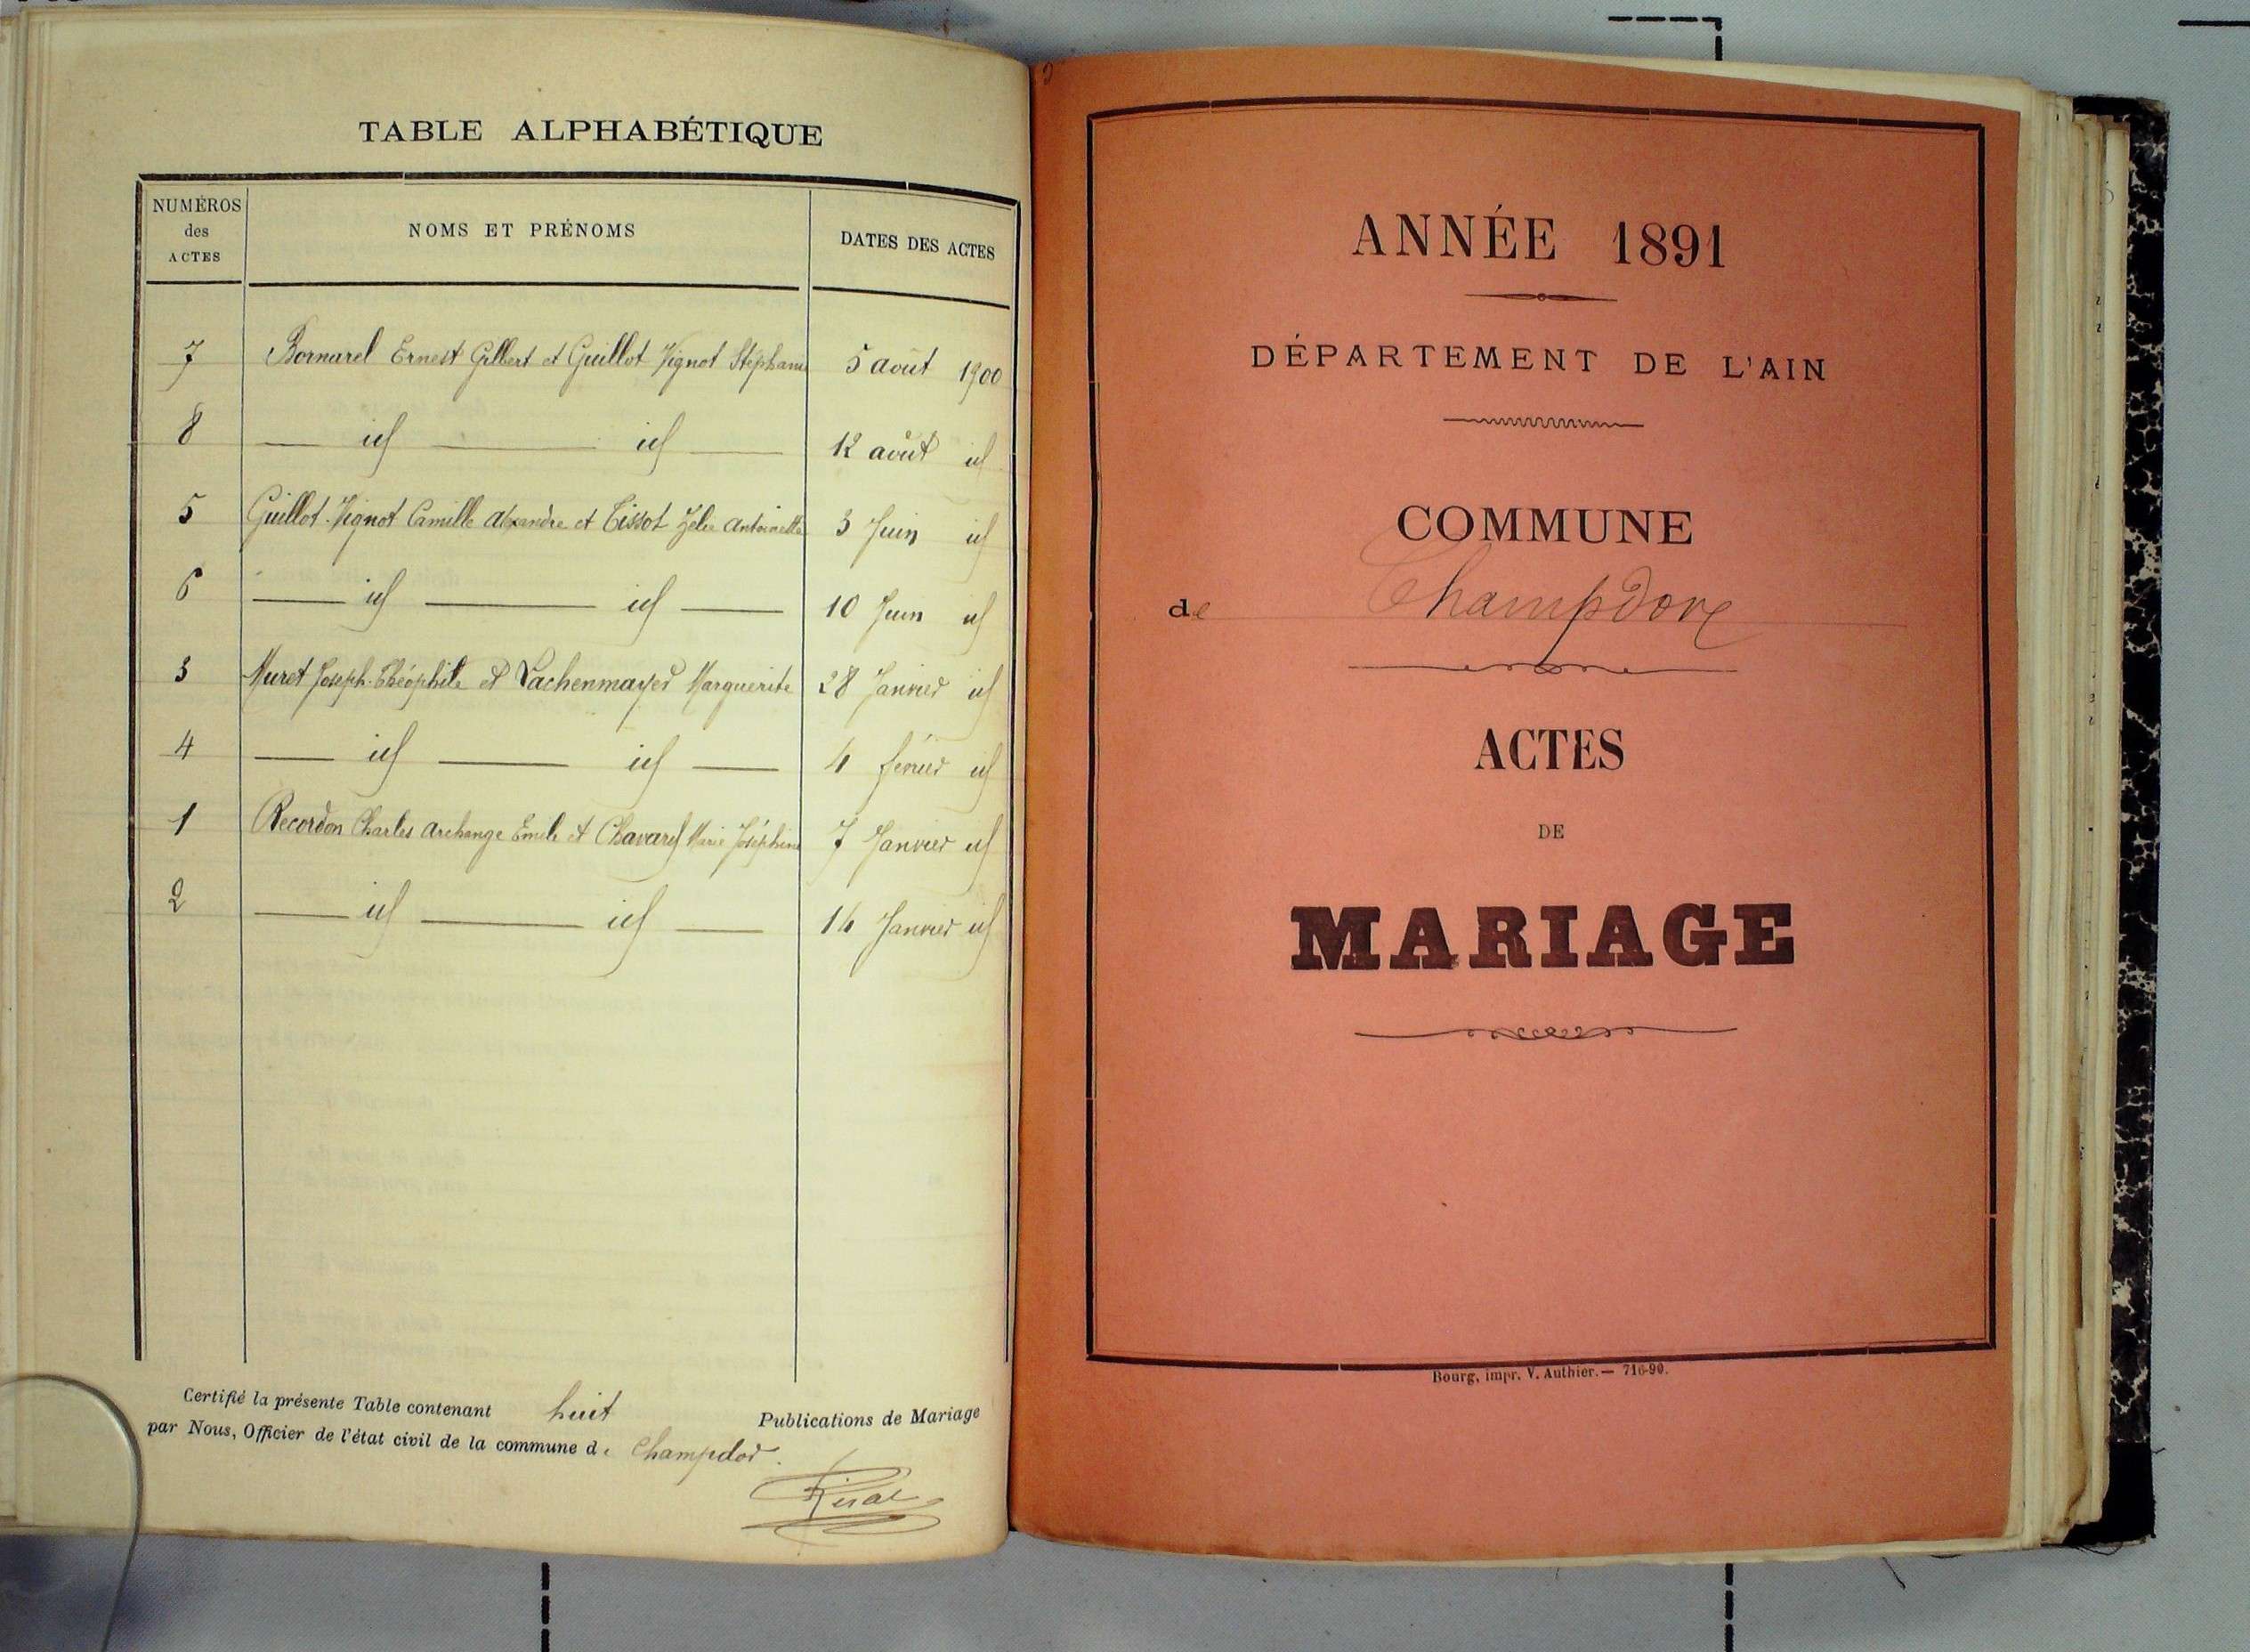 TABLE ALPHABÉTIQUE
NUMÉROS
des
ACTES
NOMS ET PRÉNOMS
DATES DES ACTES
7 Bornarel Ernest Gilbert et Guillot Vignot Stéphanie 5 août 1900
8 — id — id — 12 août id
5 Guillot-Vignot Camille Alexandre et Tissot Zélie Antoinette 3 Juin id
6 — id — id — 10 Juin id
3 Muret Joseph-Théophile et Lachenmayer Marguerite 28 Janvier id
4 — id — id — 4 février id
1 Recordon Charles Archange Emile et Chavarel Marie Joséphine 7 Janvier id
2 — id — id — 14 Janvier id
Certifié la présente Table contenant huit Publications de Mariage
par Nous, Officier de l'état civil de la commune de Champdor.
ANNÉE 1891
DÉPARTEMENT DE L'AIN
COMMUNE
de Champdore
ACTES
DE
MARIAGE
Bourg, impr. V. Authier. — 716-90.